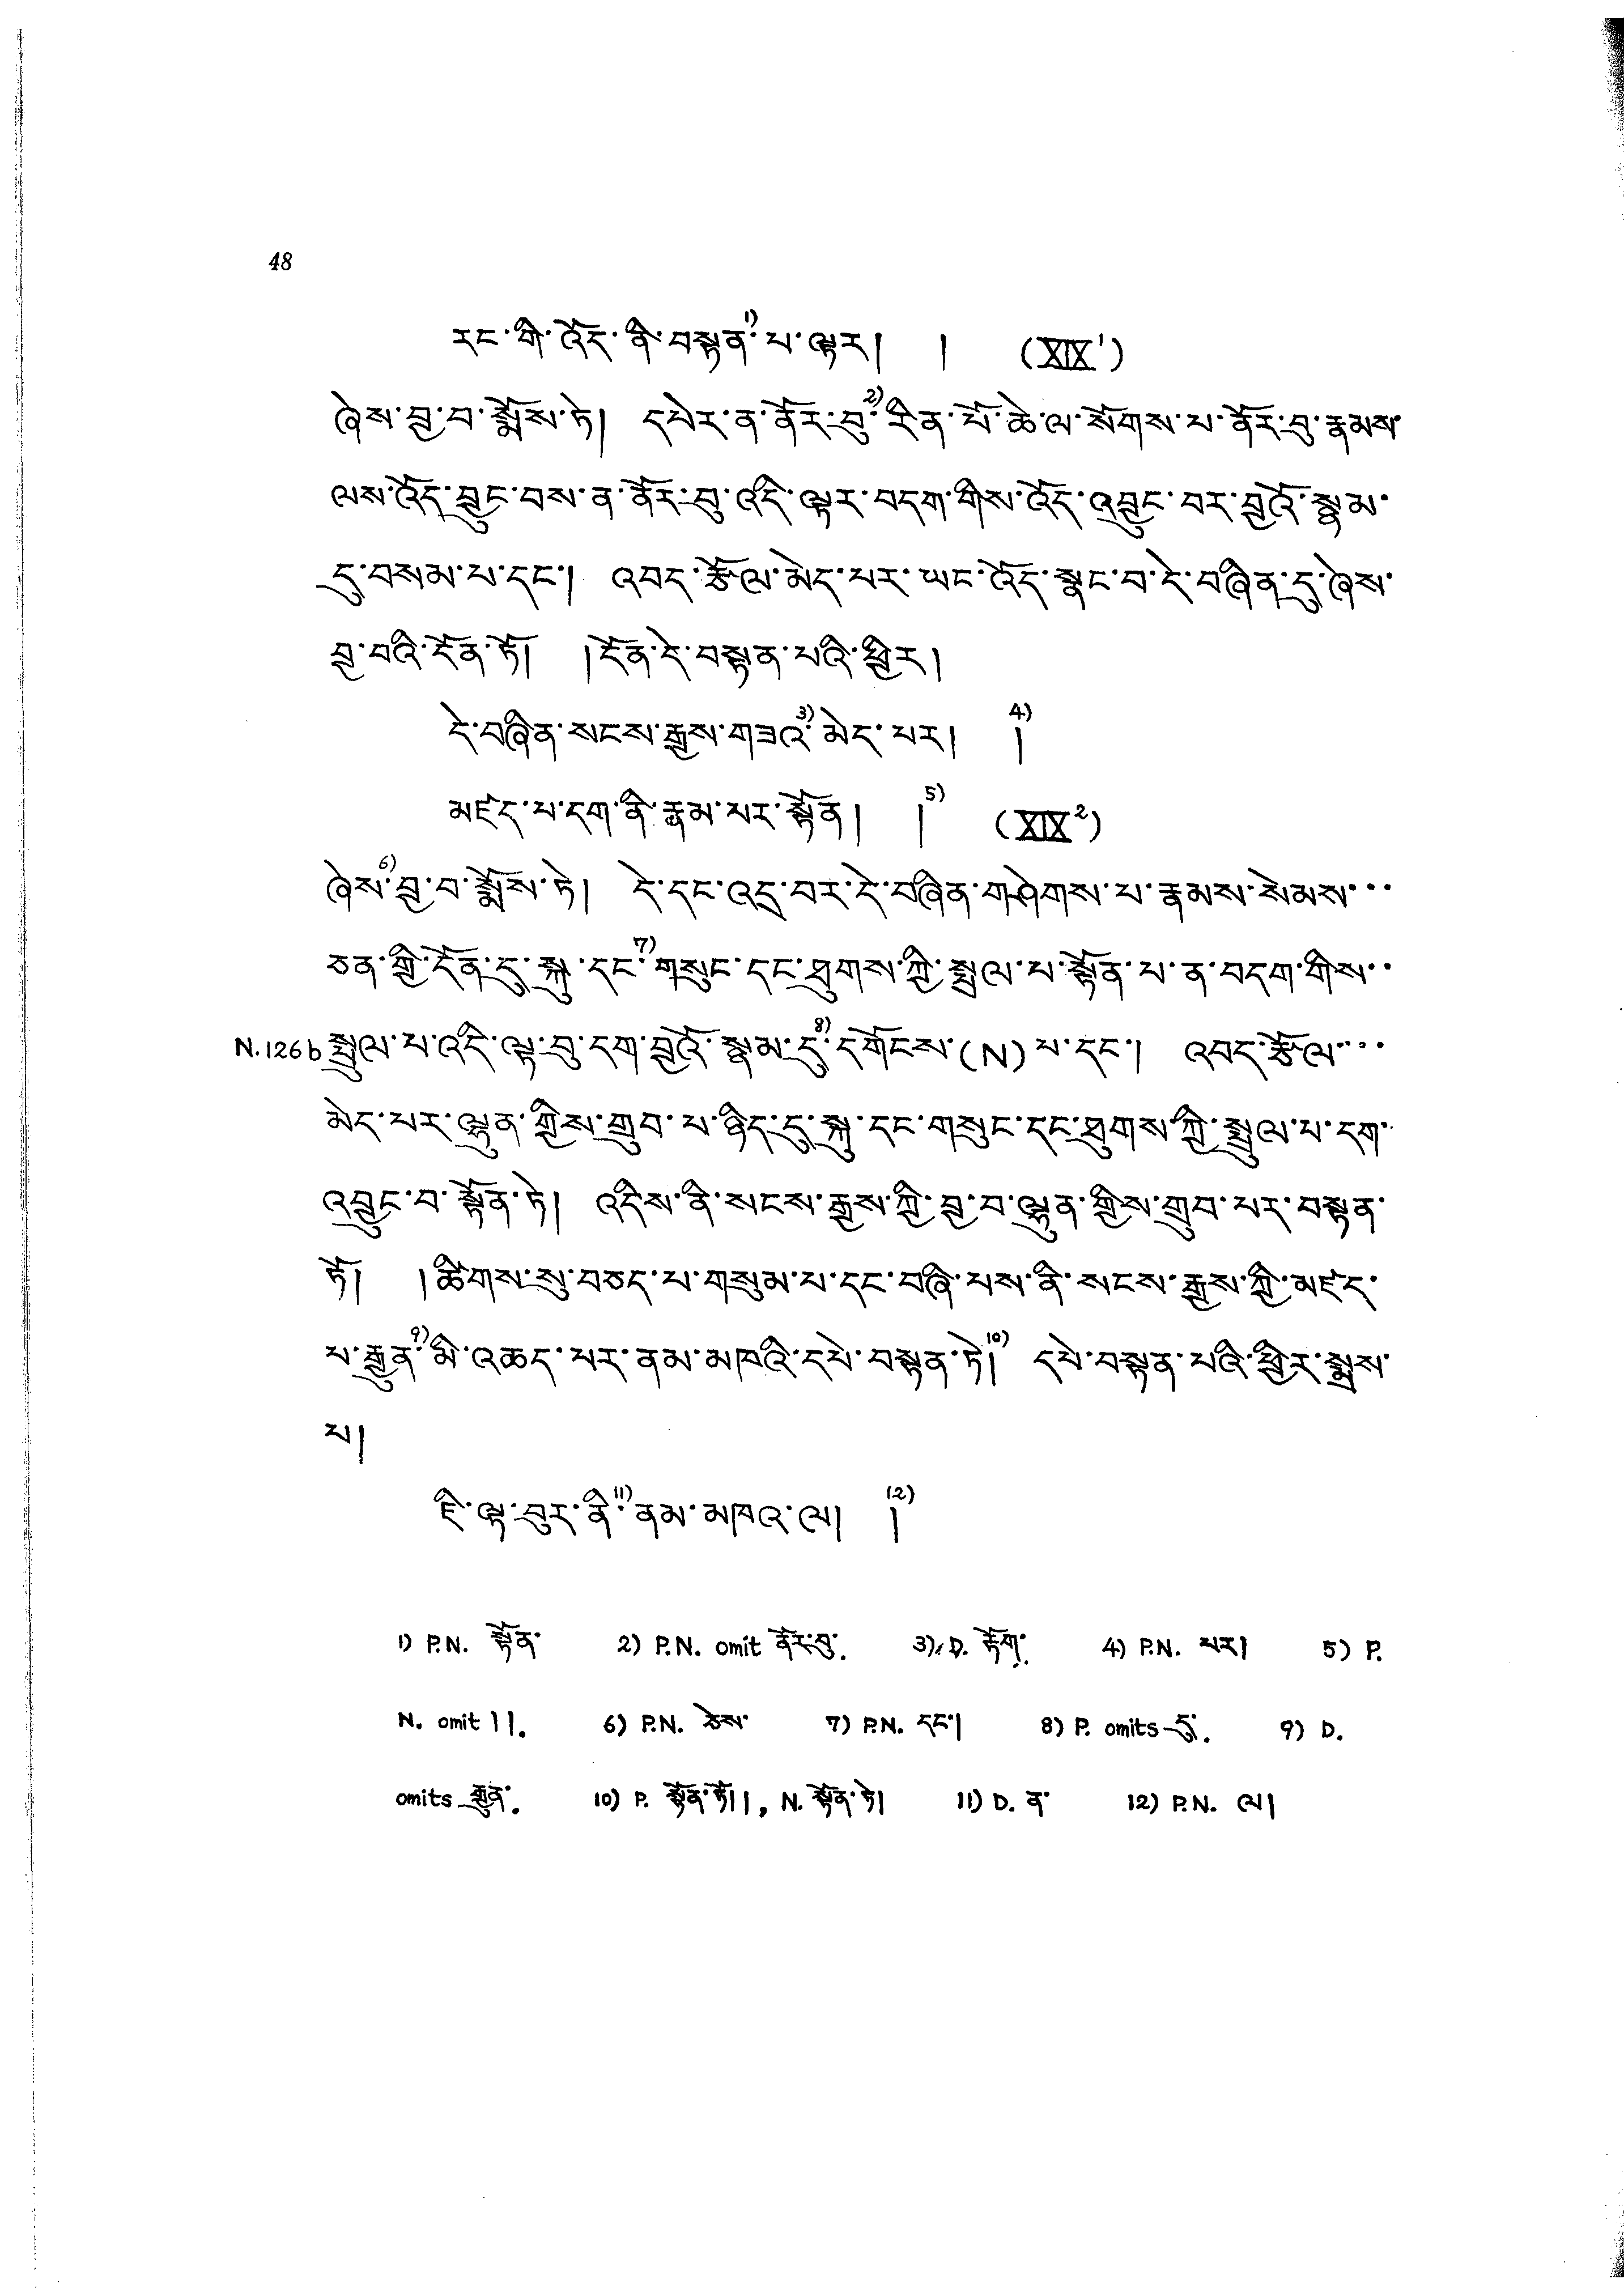 48
རང་གི་འོད་ནི་བསྟན་1)པ་ལྟར། ། (XIX1)
ཞེས་བྱ་བ་སྨོས་ཏེ། དཔེར་ན་ནོར་བུ་2)རིན་པོ་ཆེ་ལ་སོགས་པ་ནོར་བུ་རྣམས་
ལས་འོད་བྱུང་བས་ན་ནོར་བུ་འདི་ལྟར་བདག་གིས་འོད་འབྱུང་བར་བྱའོ་སྙམ་
དུ་བསམ་པ་དང་། འབད་རྩོལ་མེད་པར་ཡང་འོད་སྣང་བ་དེ་བཞིན་དུ་ཞེས་
བྱ་བའི་དོན་ཏོ། །དོན་དེ་བསྟན་པའི་ཕྱིར།
དེ་བཞིན་སངས་རྒྱས་གཟའ་3)མེད་པར། །4)
མཛད་པ་དག་ནི་རྣམ་པར་སྟོན། །5) (XIX2)
ཞེས་6)བྱ་བ་སྨོས་ཏེ། དེ་དང་འདྲ་བར་དེ་བཞིན་གཤེགས་པ་རྣམས་སེམས་་་
ཅན་གྱི་དོན་དུ་སྐུ་དང་7)གསུང་དང་ཐུགས་ཀྱི་སྤྲུལ་པ་སྟོན་པ་ན་བདག་གིས་་
N.126b སྤྲུལ་པ་འདི་ལྟ་བུ་དག་བྱའོ་སྙམ་དུ་8)དགོངས་(N)པ་དང་། འབད་རྩོལ་་་་
མེད་པར་ལྷུན་གྱིས་གྲུབ་པ་ཉིད་དུ་སྐུ་དང་གསུང་དང་ཐུགས་ཀྱི་སྤྲུལ་པ་དག་
འབྱུང་བ་སྟོན་ཏེ། འདིས་ནི་སངས་རྒྱས་ཀྱི་བྱ་བ་ལྷུན་གྱིས་གྲུབ་པར་བསྟན་
ཏོ། །ཚིགས་སུ་བཅད་པ་གསུམ་པ་དང་བཞི་པས་ནི་སངས་རྒྱས་ཀྱི་མཛད་
པ་རྒྱུན་9)མི་འཆད་པར་ནམ་མཁའི་དཔེ་བསྟན་ཏེ།10) དཔེ་བསྟན་པའི་ཕྱིར་སྨྲས་
པ།
ཇི་ལྟ་བུར་ནི་11)ནམ་མཁའ་ལ། །12)
1) P.N. སྟོན་ 2) P.N. omit ནོར་བུ་. 3) D. རྟོག་. 4) P.N. པར། 5) P.
N. omit །།. 6) P.N. ཅེས་ 7) P.N. དང་། 8) P. omits དུ་. 9) D.
omits རྒྱུན་. 10) P. སྟོན་ཏོ།།, N. སྟོན་ཏེ། 11) D. ན་ 12) P.N. ལ།